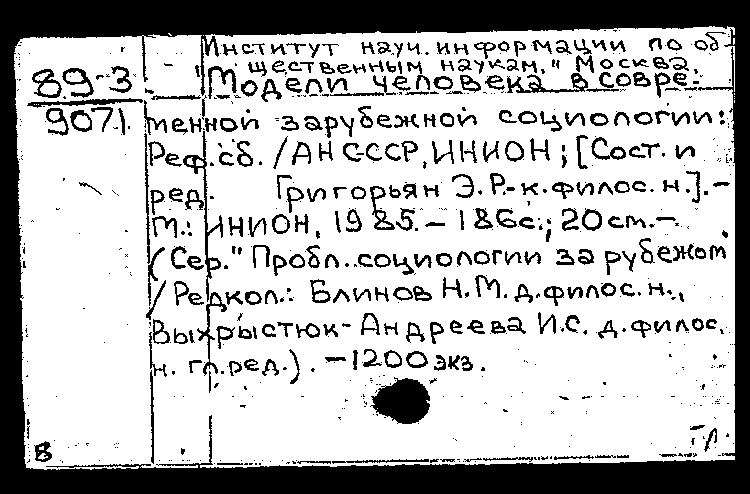 Институт науч. информации по об-
щественным наукам." Москва.
89-3 "Модели человека в совре-
9071. менной зарубежной социологии:
Реф.сб. /АН СССР, ИНИОН; [Сост. и
ред. Григорьян Э.Р.-к.филос.н.].-
М.: ИНИОН, 1985.-186с.; 20см.-
(Сер." Пробл. социологии за рубежом
/Редкол.: Блинов Н.М. д.филос.н.,
Выхрыстюк-Андреева И.С. д.филос.
н. гл.ред.). -1200экз.
в гл.